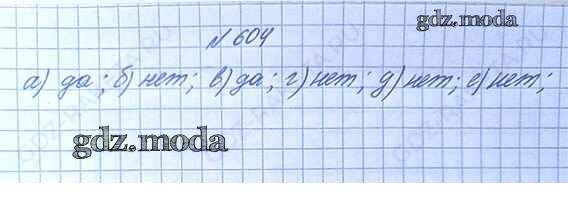 gdz.moda
№ 604
а) да; б) нет; в) да; г) нет; д) нет; е) нет;
gdz.moda